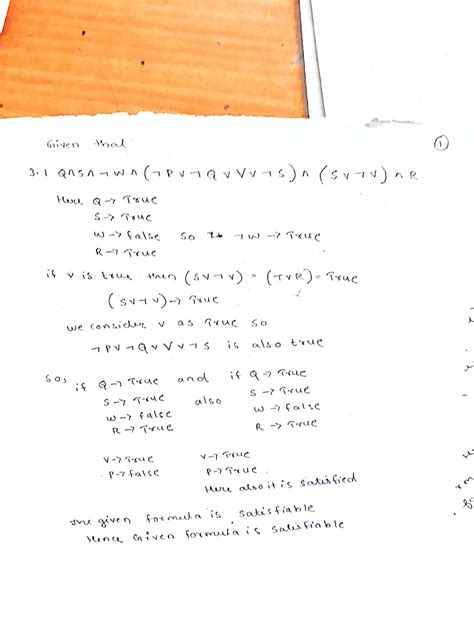 Given that
①
3.1 Q∧S∧¬W∧(¬P∨¬Q∨V∨¬S)∧(S∨¬V)∧R
Here Q→True
S→True
W→false so ¬W→True
R→True
if V is true then (S∨¬V) = (T∨R)=True
(S∨¬V)→True
we consider V as True so
¬P∨¬Q∨V∨¬S is also true
So, if Q→True and if Q→True
S→True also S→True
W→false W→false
R→True R→True
V→True V→True
P→false P→True.
Here also it is satisfied
The given formula is satisfiable
Hence Given formula is satisfiable